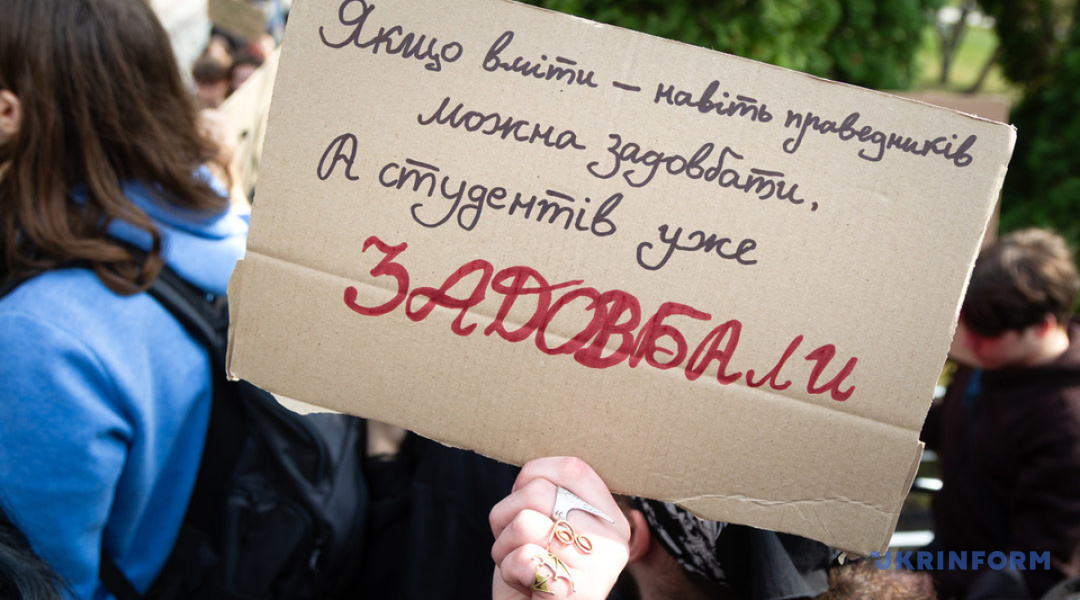 Якщо вміти – навіть праведників
можна задовбати,
А студентів уже
ЗАДОВБАЛИ
UKRINFORM